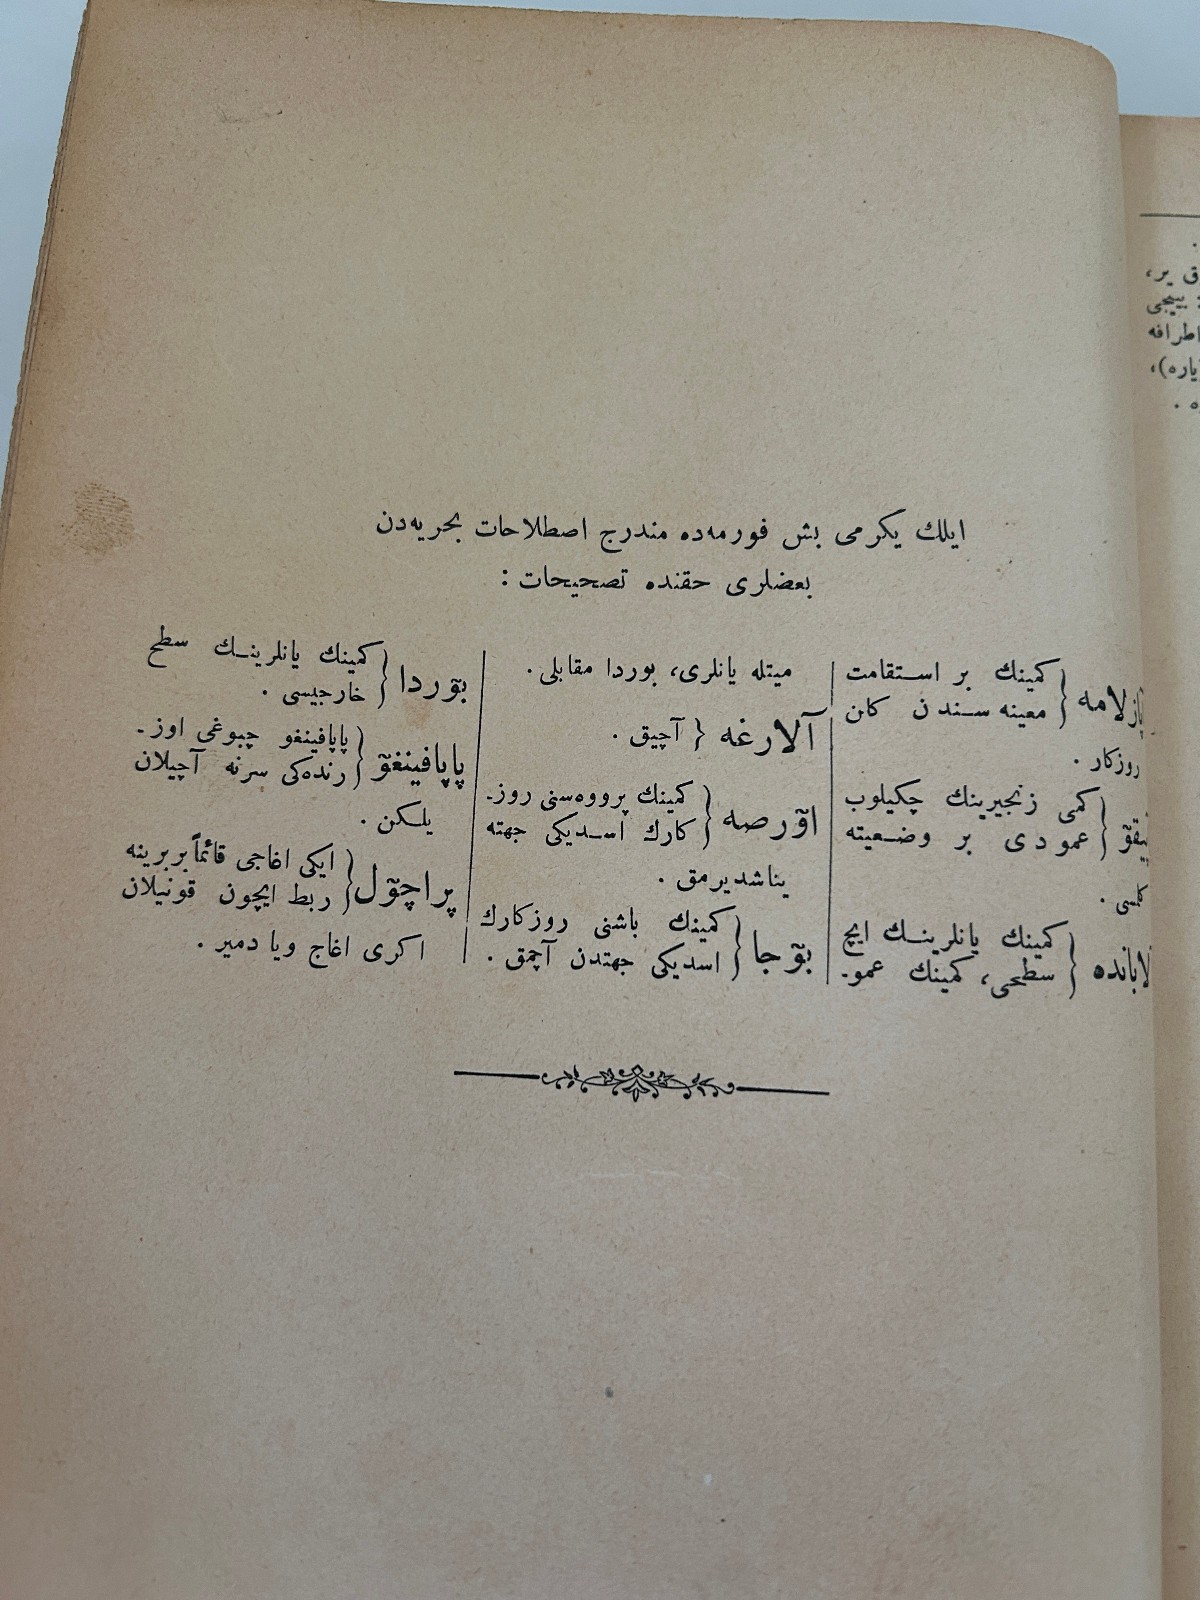 ایلك یكرمی بش فورمه‌ده مندرج اصطلاحات بحریه‌دن
بعضلری حقنده تصحیحات :
كمینك بر استقامت
معینه سندن كان
روزكار .
كمی زنجیرینك چكیلوب
عمودی بر وضعیته
كلمسی .
لابانده } كمینك یانلرینك ایچ
سطحی، كمینك عمو-
میتله یانلری، بوردا مقابلی .
آلارغه } آچیق .
اوٓرصه } كمینك پرووه‌سنی روز-
كارك اسدیكی جهته
یناشدیرمق .
بوٓجا } كمینك باشنی روزكارك
اسدیكی جهتدن آچمق .
بوٓردا } كمینك یانلرینك سطح
خارجیسی .
پاپافینغوٓ } پاپافینغو چبوغی اوز-
رنده‌كی سرنه آچیلان
یلكن .
پراچوٓل } ایكی اغاجی قائماً بربرینه
ربط ایچون قونیلان
اكری اغاج ویا دمیر .
ق یر،
اطرافه